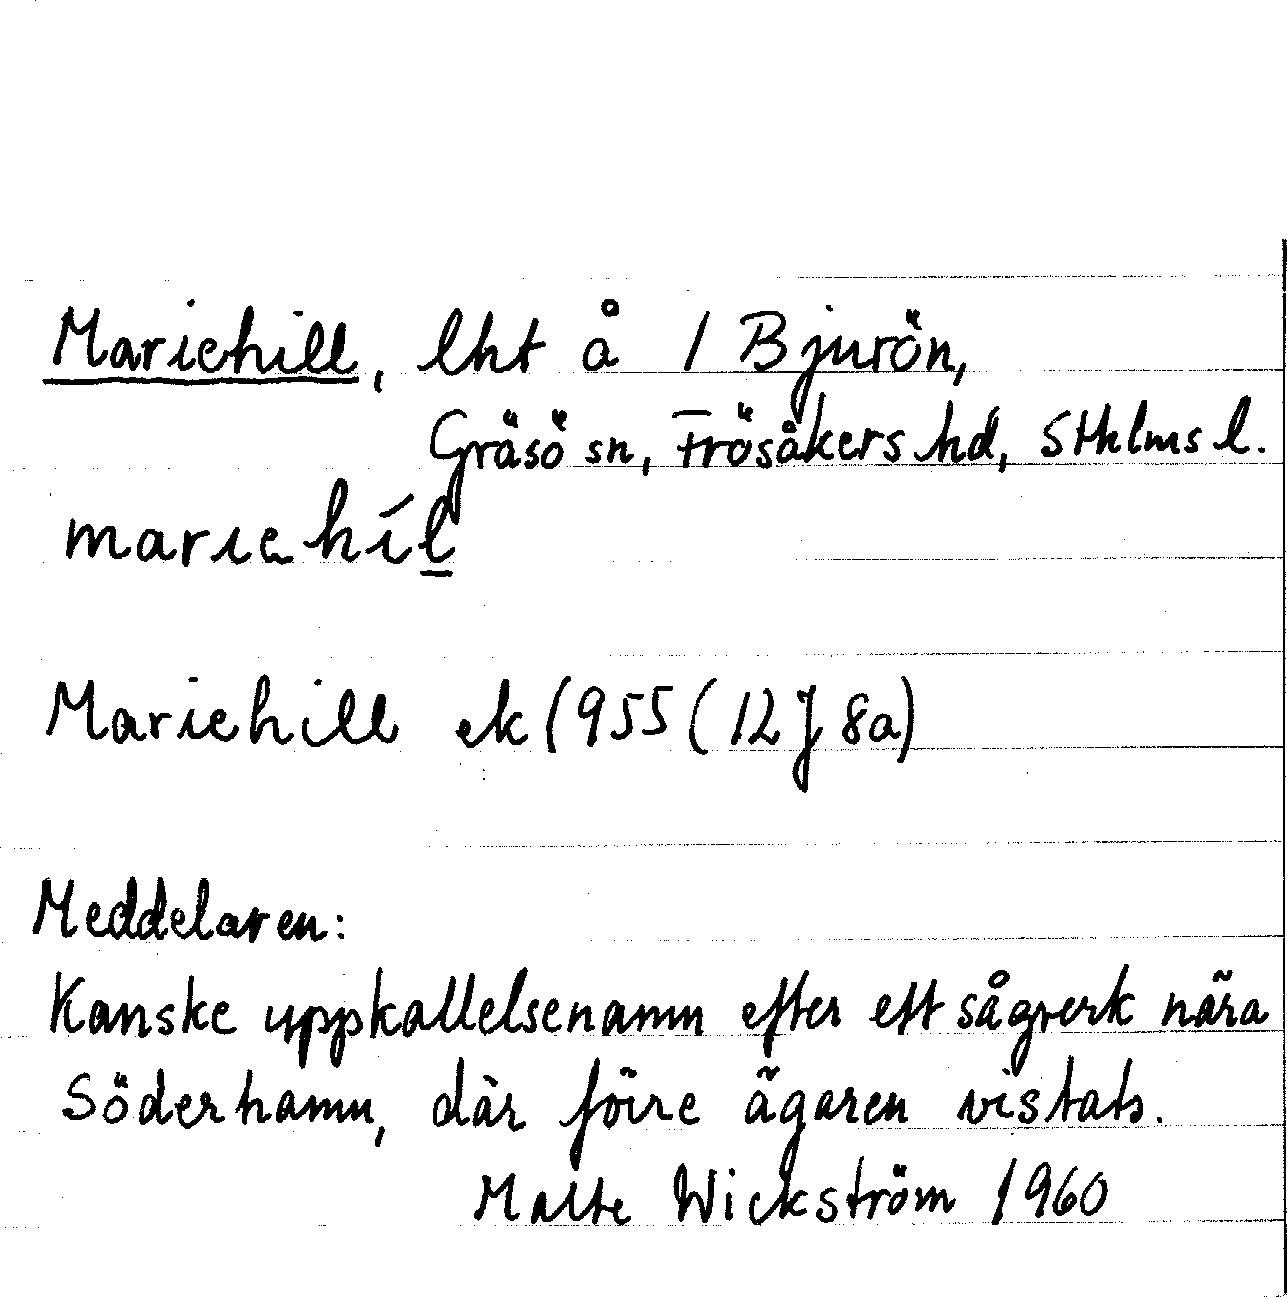 Mariehill, lht å / Bjurön,
Gräsö sn, Frösåkers hd, Sthlms l.
mariehíl
Mariehill ek 1955 (12J 8a)
Meddelaren:
Kanske uppkallelsenamn efter ett sågverk nära
Söderhamn, där förre ägaren vistats.
Malte Wickström 1960